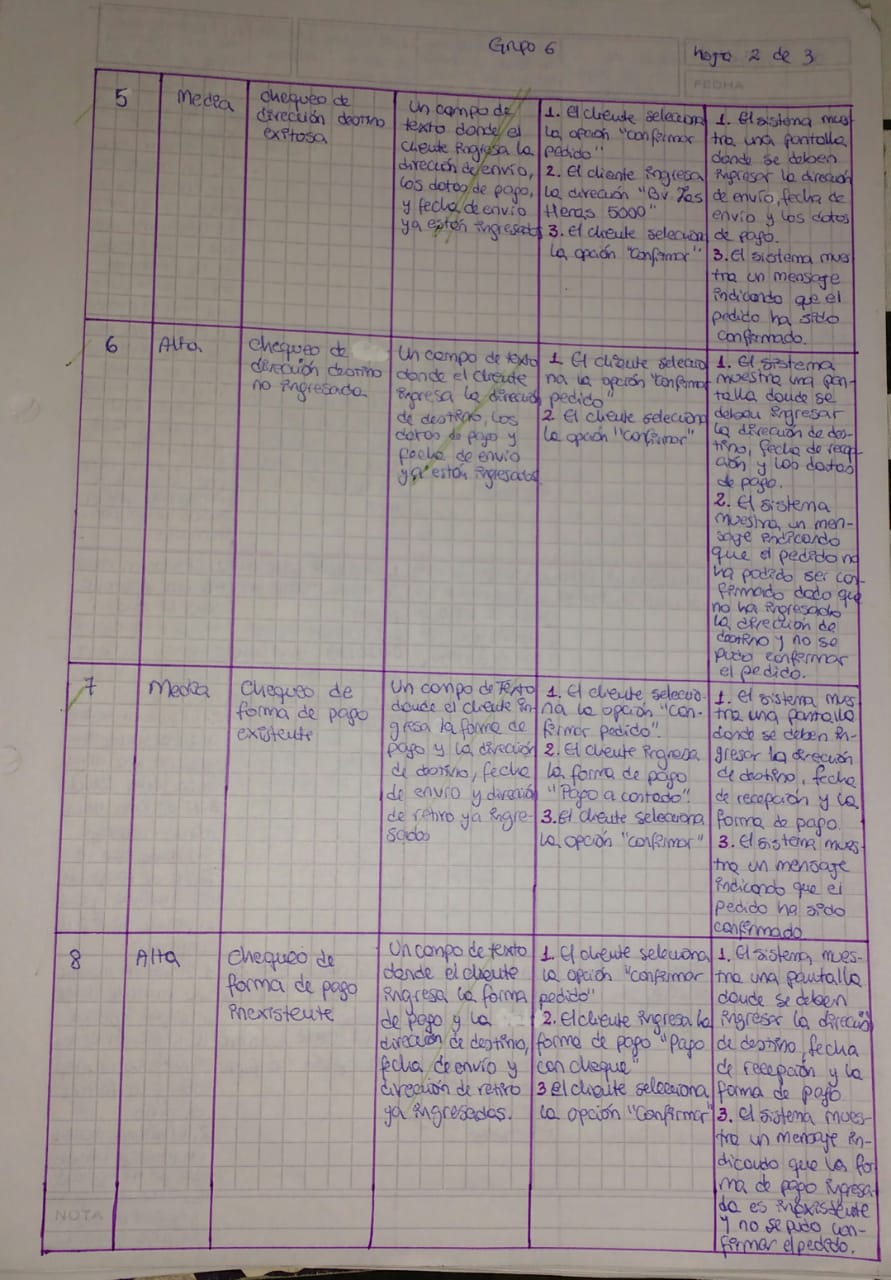 Grupo 6
hoja 2 de 3
FECHA
5
Media
chequeo de
dirección destino
exitosa
Un campo de
texto donde el
cliente ingresa la
dirección de envío,
los datos de pago,
y fecha de envío
ya están ingresados
1. El cliente selecciona
la opción "confirmar
pedido"
2. El cliente ingresa
la dirección "Bv Las
Heras 5000"
3. El cliente selecciona
la opción "confirmar"
1. El sistema mues
tra una pantalla
donde se deben
ingresar la dirección
de envío, fecha de
envío y los datos
de pago.
3. El sistema mues
tra un mensaje
indicando que el
pedido ha sido
confirmado.
6
Alta
chequeo de
dirección destino
no ingresada
Un campo de texto
donde el cliente
ingresa la dirección
de destino, los
datos de pago y
fecha de envío
ya están ingresados
1. El cliente seleccio
na la opción "confirmar
pedido"
2 El cliente selecciona
la opción "confirmar"
1. El sistema
muestra una pan-
talla donde se
deben ingresar
la dirección de des-
tino, fecha de recep-
ción y los datos
de pago.
2. El sistema
muestra un men-
saje indicando
que el pedido no
ha podido ser con
firmado dado que
no ha ingresado
la dirección de
destino y no se
pudo confirmar
el pedido.
7
Media
Chequeo de
forma de pago
existente
Un campo de Texto
donde el cliente in-
gresa la forma de
pago y la dirección
de destino, fecha
de envío y dirección
de retiro ya ingre-
sados
1. El cliente seleccio-
na la opción "con-
firmar pedido".
2. El cliente ingresa
la forma de pago
"Pago a contado".
3. El cliente selecciona
la opción "confirmar"
1. El sistema mues
tra una pantalla
donde se deben in-
gresar la dirección
de destino, fecha
de recepción y la
forma de pago.
3. El sistema mues-
tra un mensaje
indicando que el
pedido ha sido
confirmado
8
Alta
Chequeo de
forma de pago
inexistente
Un campo de texto
donde el cliente
ingresa la forma
de pago y la
dirección de destino,
fecha de envío y
dirección de retiro
ya ingresadas.
1. El cliente selecciona
la opción "confirmar
pedido"
2. El cliente ingresa la
forma de pago "Pago
con cheque"
3 El cliente selecciona
la opción "Confirmar"
1. El sistema mues-
tra una pantalla
donde se deben
ingresar la dirección
de destino, fecha
de recepción y la
forma de pago
3. El sistema mues-
tra un mensaje in-
dicando que la for
ma de pago ingresa-
da es inexistente
y no se pudo con-
firmar el pedido.
NOTA